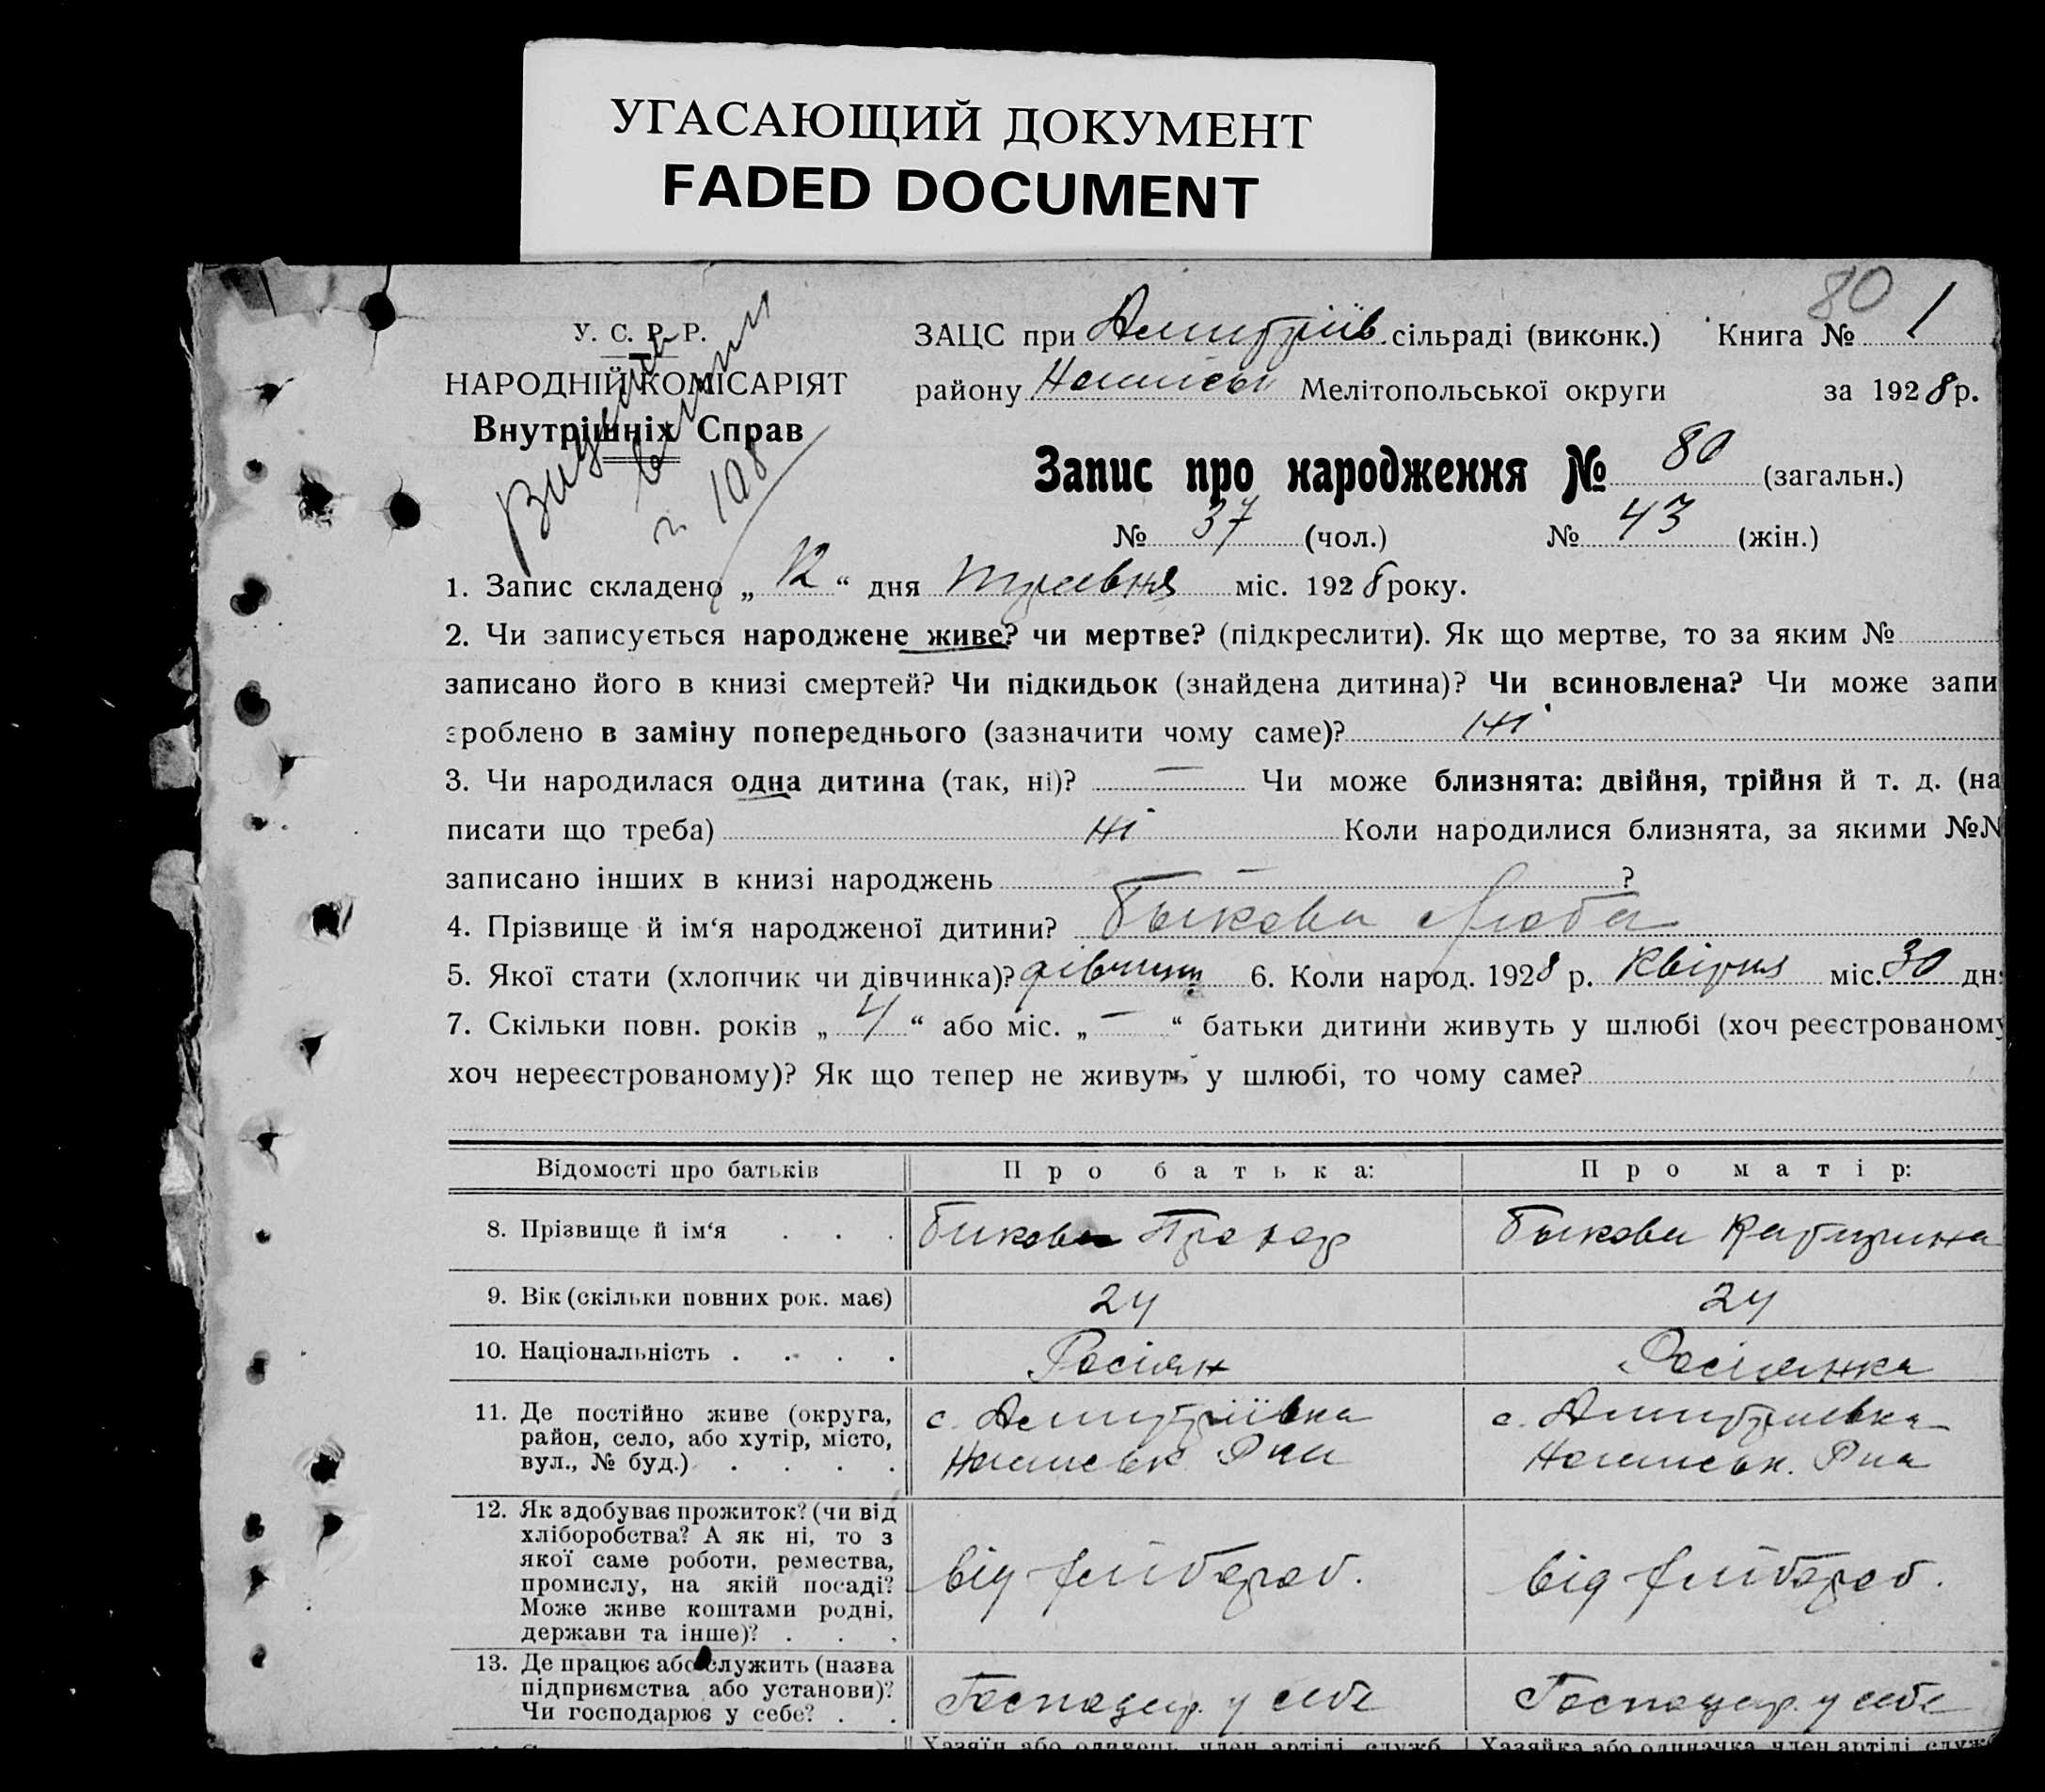 УГАСАЮЩИЙ ДОКУМЕНТ
FADED DOCUMENT
80
У. С. Р. Р.
НАРОДНІЙ КОМІСАРІЯТ
Внутрішніх Справ
ЗАЦС при Дмитріїв. сільраді (виконк.) Книга № 1
району Мелітопольської округи за 1928 р.
Запис про народження № 80 (загальн.)
№ 37 (чол.) № 43 (жін.)
1. Запис складено „ 12 “ дня травня міс. 1928 року.
2. Чи записується народжене живе? чи мертве? (підкреслити). Як що мертве, то за яким №
записано його в книзі смертей? Чи підкидьок (знайдена дитина)? Чи всиновлена? Чи може запи
зроблено в заміну попереднього (зазначити чому саме)? ні
3. Чи народилася одна дитина (так, ні)? — Чи може близнята: двійня, трійня й т. д. (на
писати що треба) ні Коли народилися близнята, за якими №№
записано інших в книзі народжень — ?
4. Прізвище й ім‘я народженої дитини? Быкова Люба
5. Якої стати (хлопчик чи дівчинка)? дівчина 6. Коли народ. 1928 р. Квітня міс. 30 дн
7. Скільки повн. років „ 4 “ або міс. „ — “ батьки дитини живуть у шлюбі (хоч реєстрованому
хоч нереєстрованому)? Як що тепер не живуть у шлюбі, то чому саме?
Відомості про батьків Про батька: Про матір:
8. Прізвище й ім‘я . . . Биков Прохор Быкова Катерина
9. Вік (скільки повних рок. має) 24 24
10. Національність . . . . Росіян Росіянка
11. Де постійно живе (округа, с. Дмитріївка с. Дмитриевка
район, село, або хутір, місто, Рна Рна
вул., № буд.) . . . .
12. Як здобуває прожиток? (чи від
хліборобства? А як ні, то з
якої саме роботи, ремества,
промислу, на якій посаді? від хлібороб. від хлібороб.
Може живе коштами родні,
держави та інше)? . . .
13. Де працює або служить (назва
підприємства або установи)? Господар. у себе Господар. у себе
Чи господарює у себе? . .
Хазяїн або одинець, член артілі, служб Хазяйка або одиначка, член артілі, служ